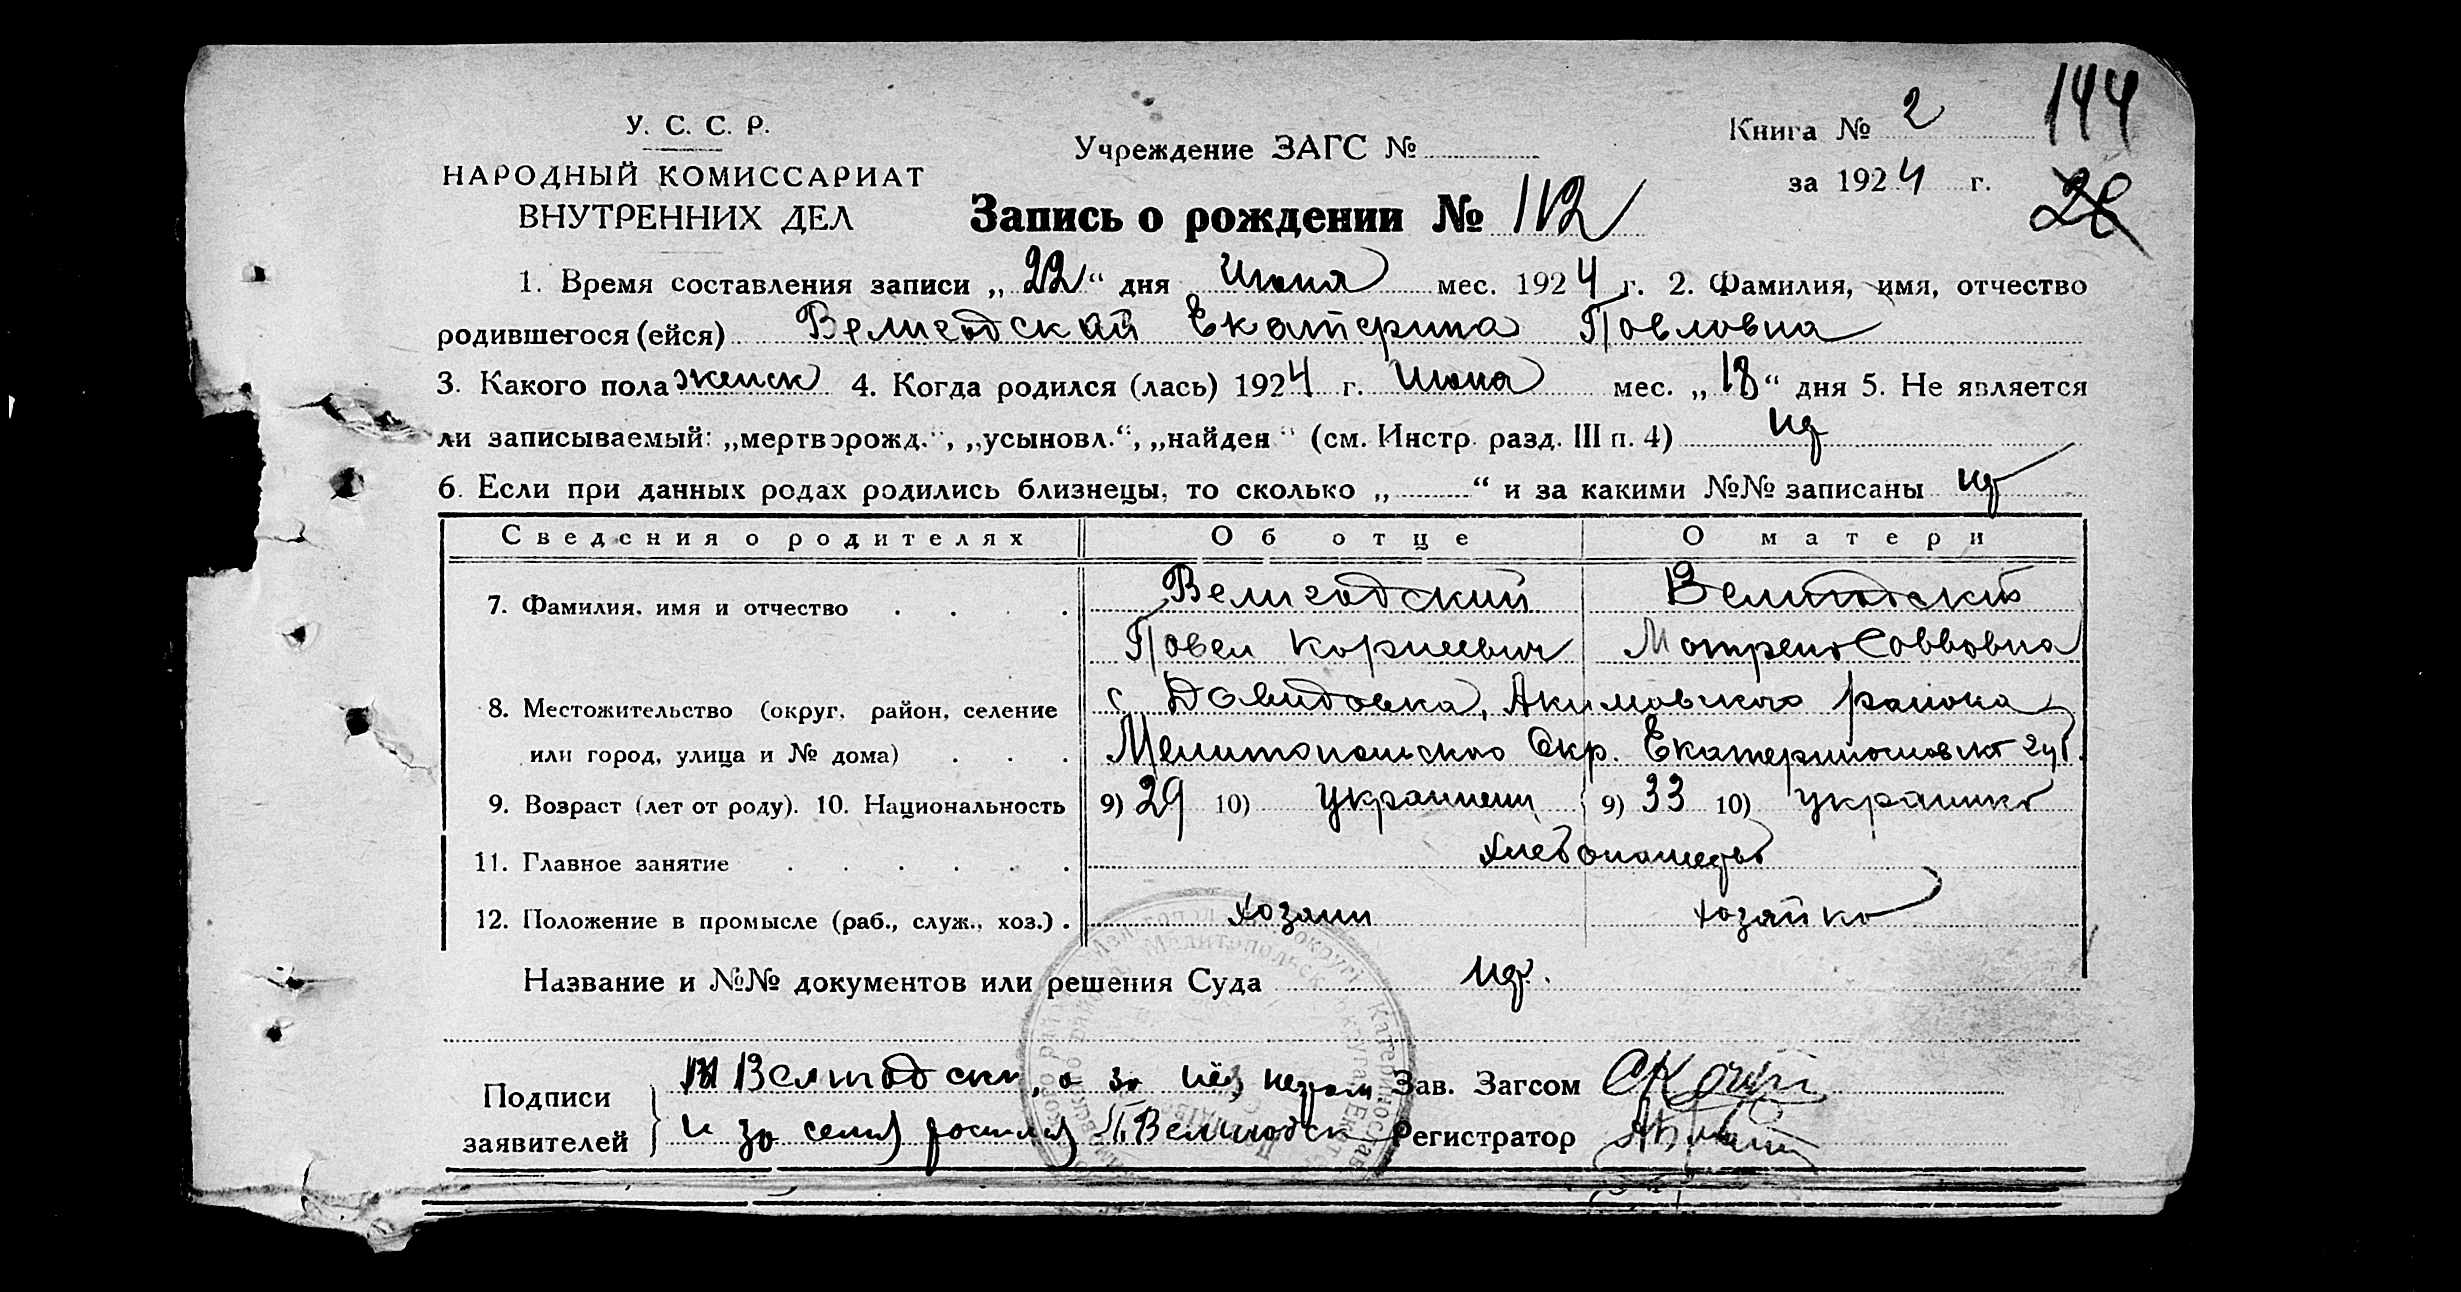 У. С. С. Р.
НАРОДНЫЙ КОМИССАРИАТ
ВНУТРЕННИХ ДЕЛ
Учреждение ЗАГС №
Книга № 2
за 1924 г.
144
28
Запись о рождении № 112
1. Время составления записи „22“ дня Июня мес. 1924 г. 2. Фамилия, имя, отчество
родившегося (ейся) Велигодская Екатерина Павловна
3. Какого пола женск 4. Когда родился (лась) 1924 г. Июня мес. „18“ дня 5. Не является
ли записываемый: „мертворожд.“, „усыновл.“, „найден“ (см. Инстр. разд. III п. 4)
6. Если при данных родах родились близнецы, то сколько „ “ и за какими №№ записаны
Сведения о родителях Об отце О матери
7. Фамилия, имя и отчество . . . . Велигодский Велигодская
Павел Корнеевич Матрена Саввовна
8. Местожительство (округ, район, селение с Давидовка, Акимовского района
или город, улица и № дома) . . . Мелитопольского Окр. Екатеринославской губ.
9. Возраст (лет от роду). 10. Национальность 9) 29 10) украинец 9) 33 10) украинка
11. Главное занятие . . . . . хлебопашество
12. Положение в промысле (раб., служ., хоз.) . хозяин хозяйка
Название и №№ документов или решения Суда
Подписи
заявителей
М Велигодска, а за неё неграм
и за себя росписался П. Велигодск
Зав. Загсом
Регистратор